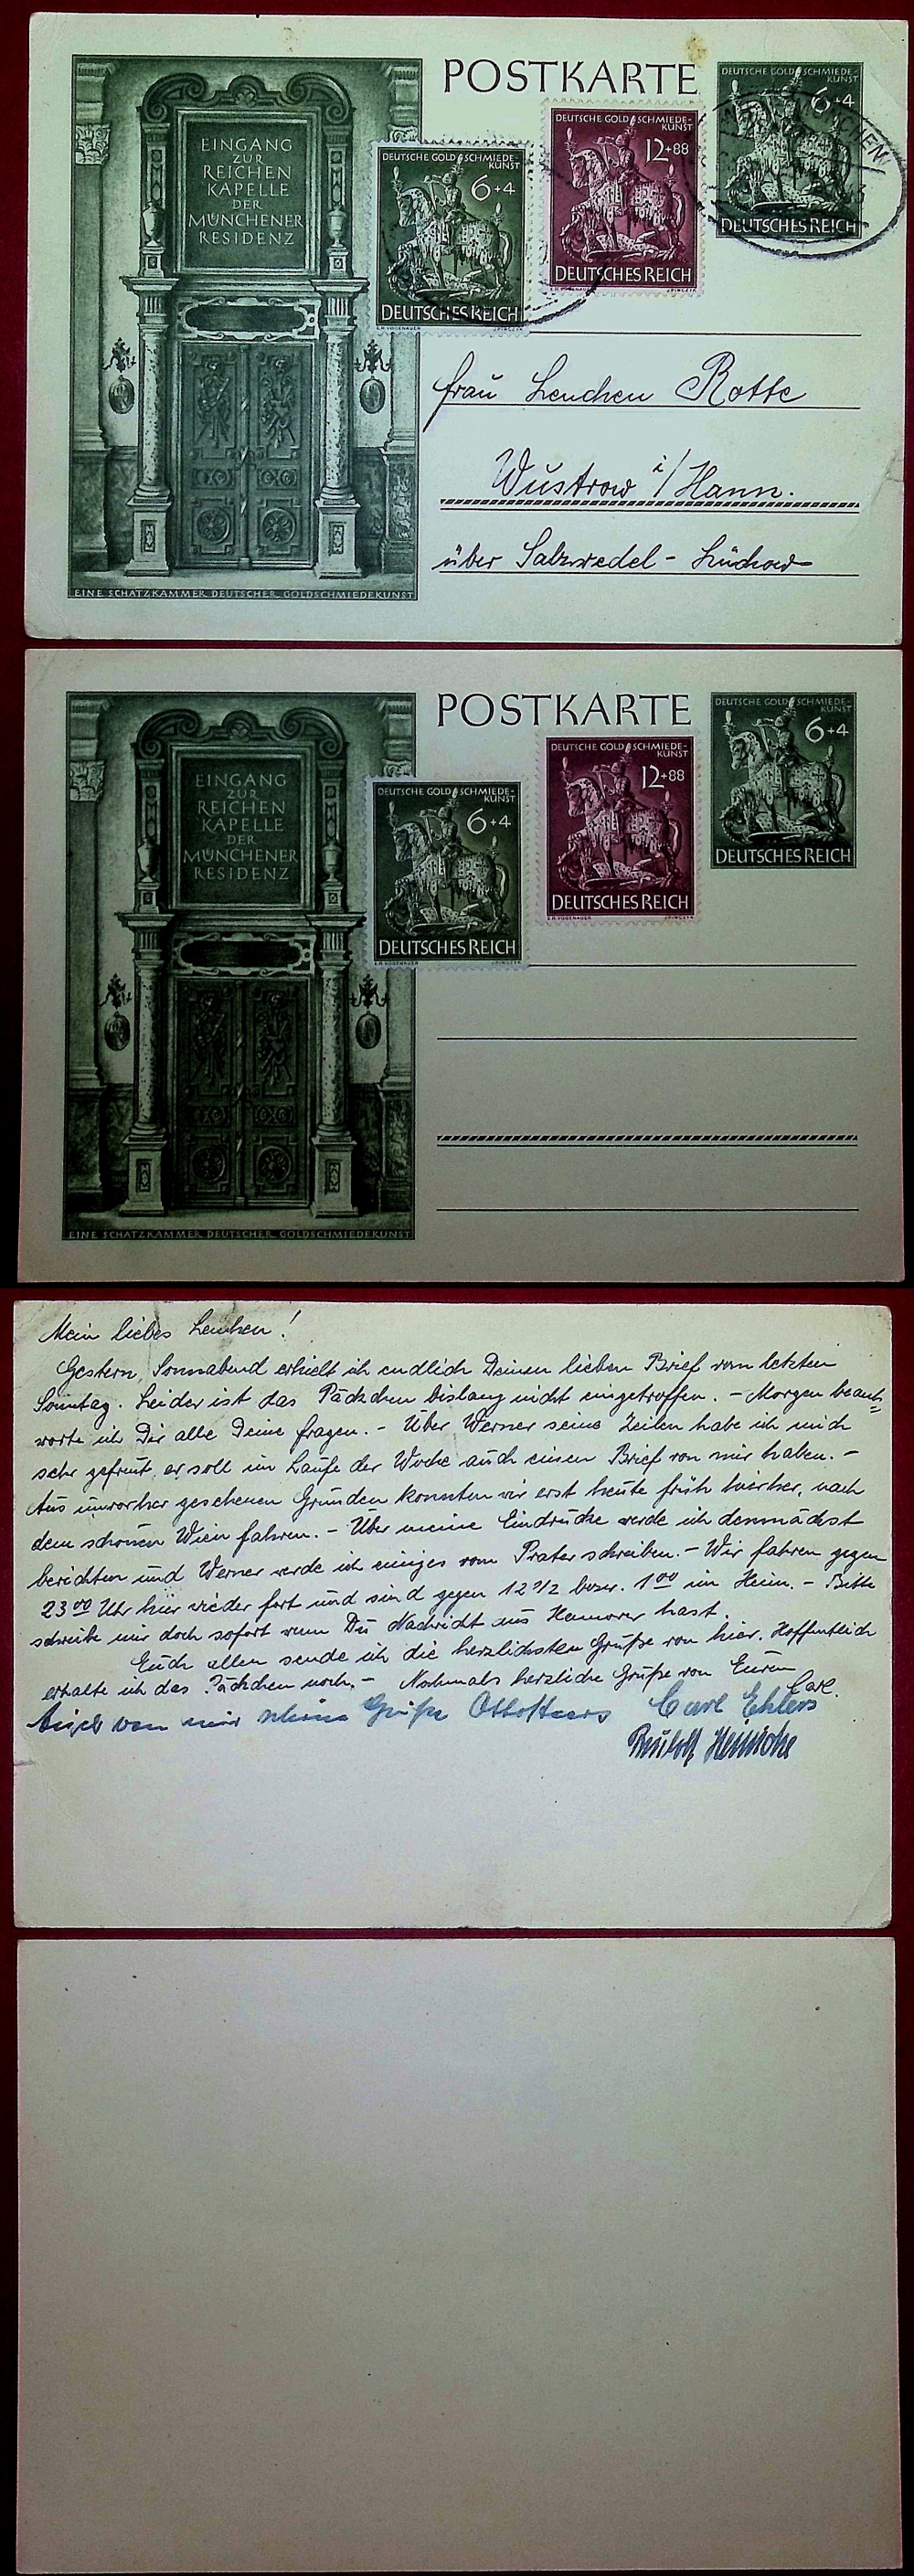 POSTKARTE
EINGANG
ZUR
REICHEN
KAPELLE
DER
MÜNCHENER
RESIDENZ
EINE SCHATZKAMMER DEUTSCHER GOLDSCHMIEDEKUNST
DEUTSCHE GOLDSCHMIEDE-
KUNST
6+4
DEUTSCHES REICH
DEUTSCHE GOLDSCHMIEDE-
KUNST
12+88
DEUTSCHES REICH
DEUTSCHE GOLDSCHMIEDE
KUNST
6+4
DEUTSCHES REICH
Frau Lenchen Rotte
Wustrow i/Hann.
über Salzwedel - Lüchow
POSTKARTE
EINGANG
ZUR
REICHEN
KAPELLE
DER
MÜNCHENER
RESIDENZ
EINE SCHATZKAMMER DEUTSCHER GOLDSCHMIEDEKUNST
DEUTSCHE GOLDSCHMIEDE-
KUNST
6+4
DEUTSCHES REICH
DEUTSCHE GOLDSCHMIEDE-
KUNST
12+88
DEUTSCHES REICH
DEUTSCHE GOLDSCHMIEDE
KUNST
6+4
DEUTSCHES REICH
Mein liebes Lenchen!
Gestern, Sonnabend erhielt ich endlich Deinen lieben Brief vom letzten
Sonntag. Leider ist das Päckchen bislang nicht eingetroffen. - Morgen beant=
worte ich Dir alle Deine Fragen. - Über Werner seine Zeilen habe ich mich
sehr gefreut, er soll im Laufe der Woche auch einen Brief von mir haben. -
Aus unvorher gesehenen Gründen konnten wir erst heute früh hierher, nach
dem schönen Wien fahren. - Über meine Eindrücke werde ich demnächst
berichten und Werner werde ich einiges vom Prater schreiben. - Wir fahren gegen
23 00 Uhr hier wieder fort und sind gegen 12 1/2 bezw. 1 00 im Heim. - Bitte
schreibe mir doch sofort wenn Du Nachricht aus Hannover hast.
Euch allen sende ich die herzlichsten Grüße von hier. Hoffentlich
erhalte ich das Päckchen noch. - Nochmals herzliche Grüße von Eurem
Carl.
Auch von mir schöne Grüße Otto Carl Ehlers
Rudolf Heinicke